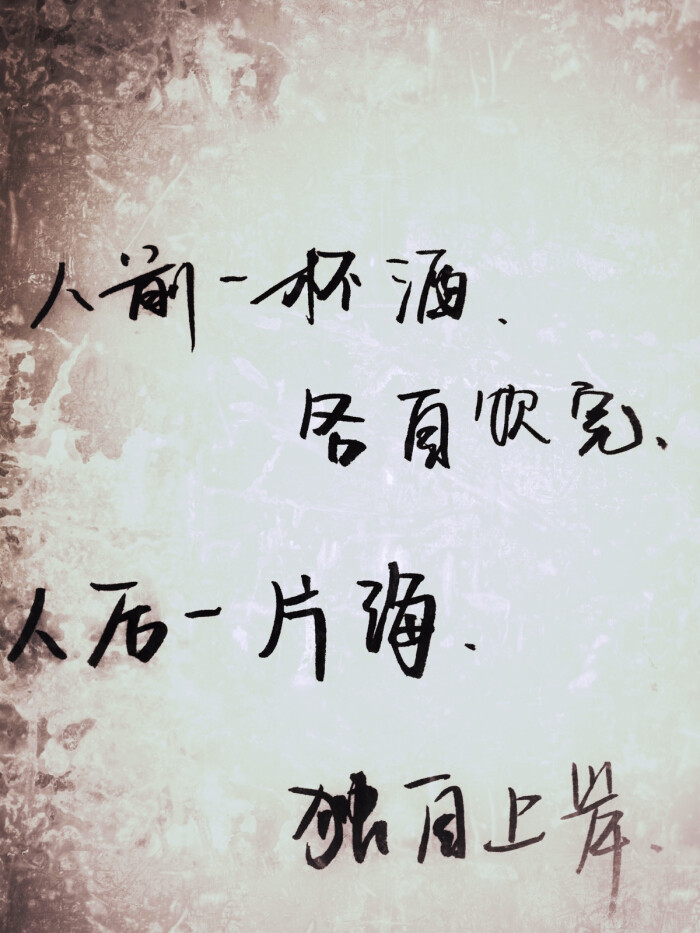 人前一杯酒、
各自饮完、
人后一片海、
独自上岸、